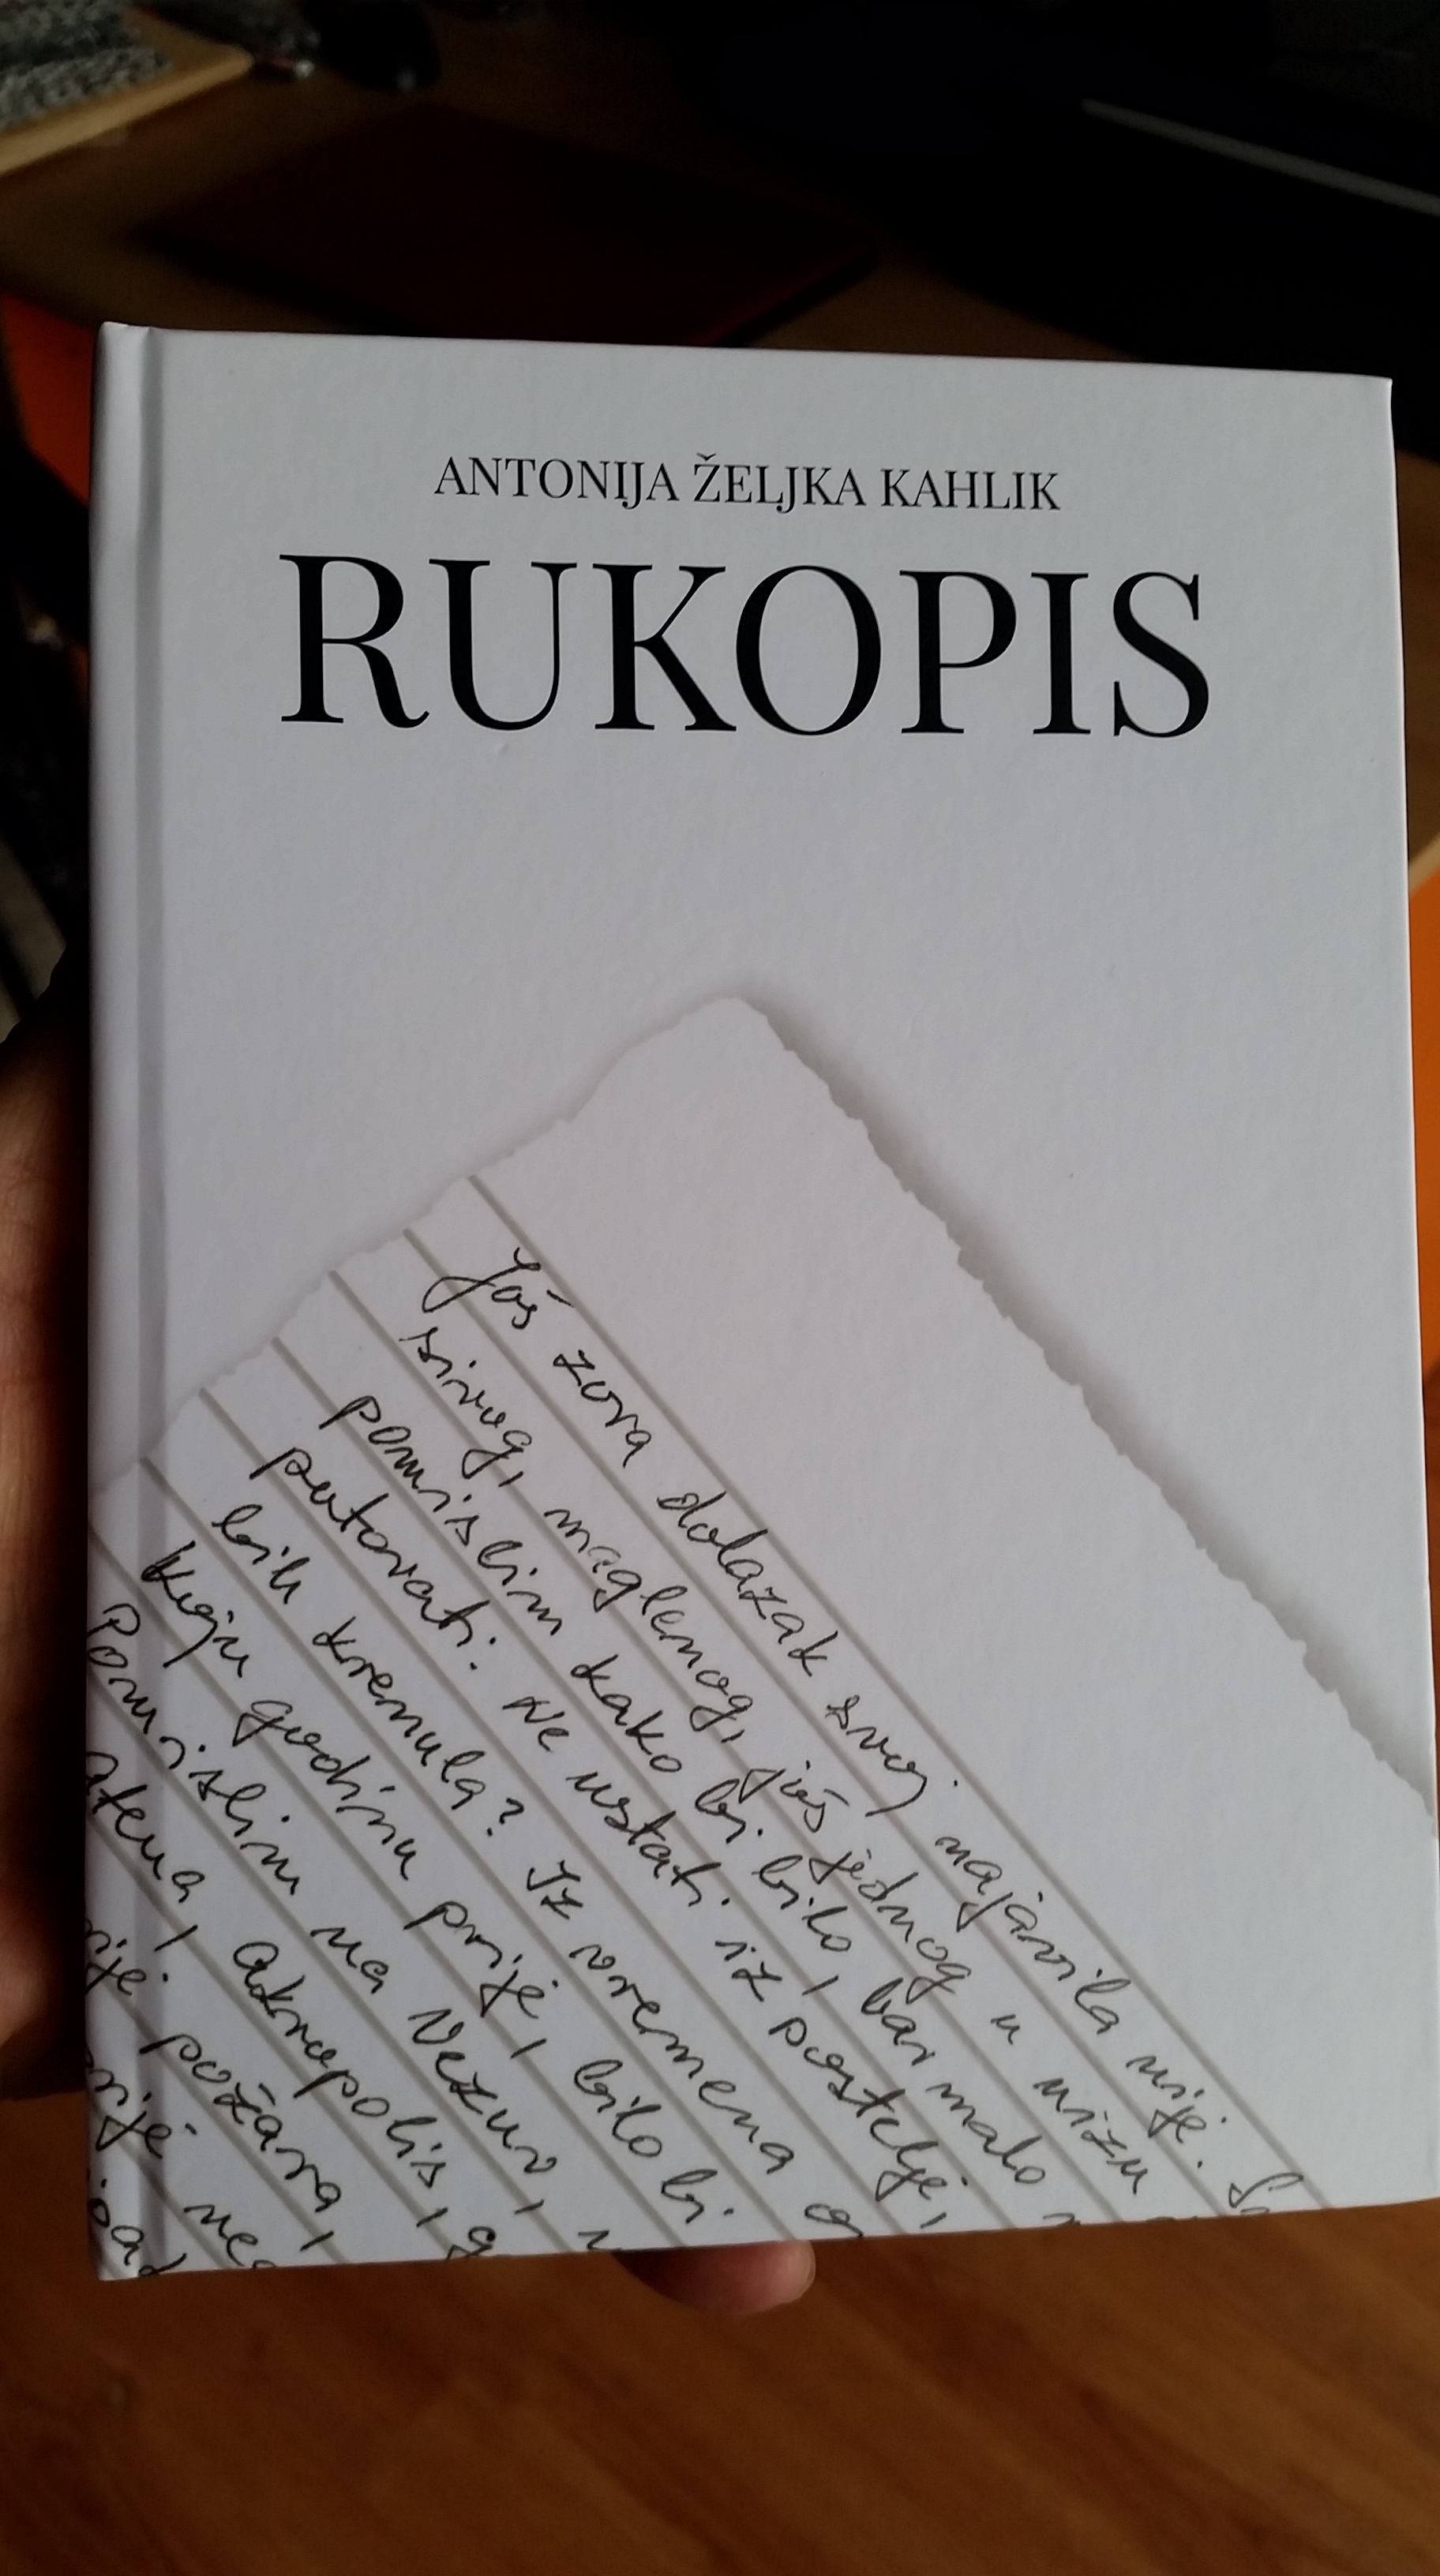 ANTONIJA ŽELJKA KAHLIK
RUKOPIS
Još zora dolazak svoj najavila nije.
sivog, maglenog, još jednog u nizu
pomislim kako bi bilo, bar malo
putovati. Ne ustati iz postelje,
bih krenula? Iz vremena
koju godinu prije, bilo bi.
Pomislim na Vezuv,
Atena, Akropolis,
požara,